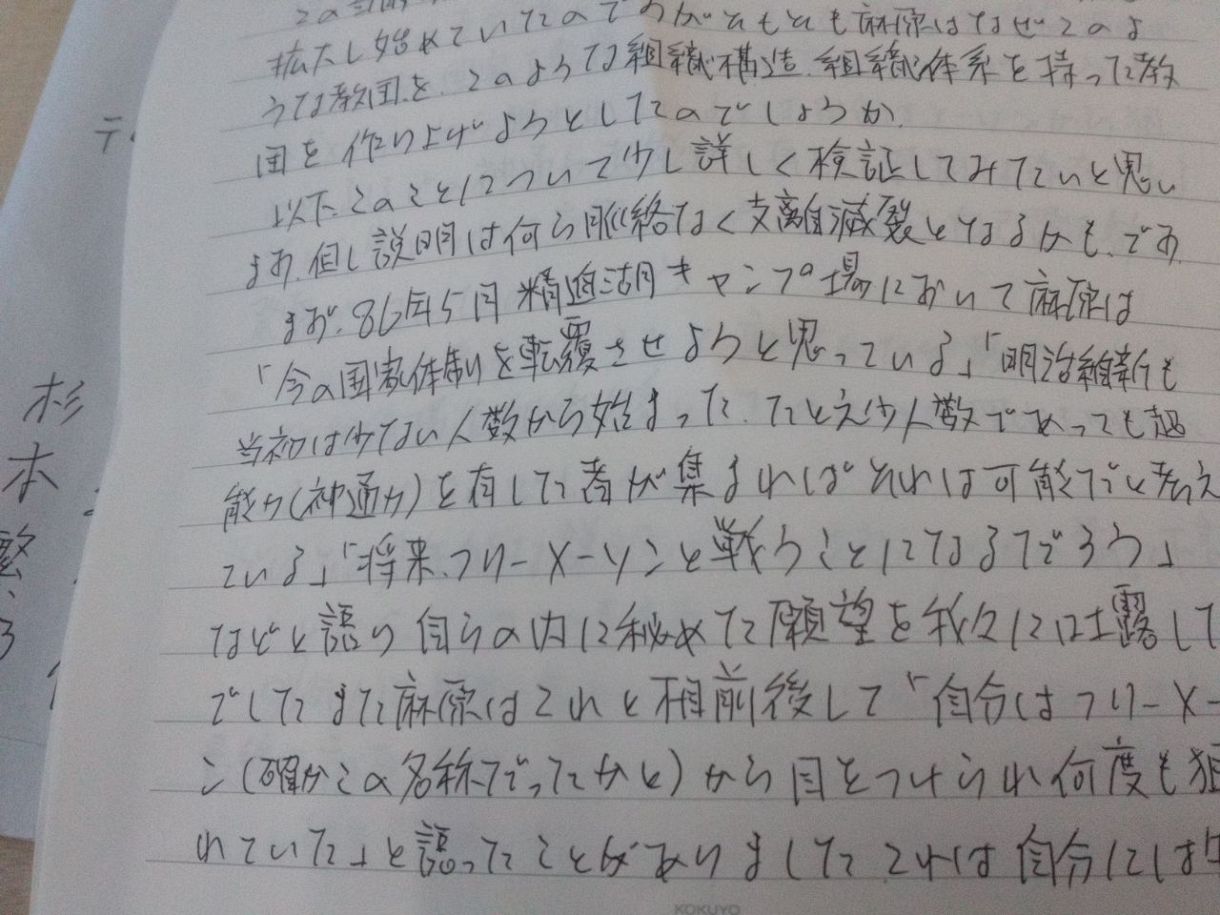 拡大し始めていたのですがそもそも麻原はなぜこのよ
うな教団を、このような組織構造、組織体系を持った教
団を作り上げようとしたのでしょうか、
以下、このことについて少し詳しく検証してみたいと思い
ます、但し説明は何ら脈絡なく支離滅裂となるかも、です、
まず、86年5月 精進湖キャンプ場において麻原は
「今の国家体制を転覆させようと思っている」「明治維新も
当初は少ない人数から始まった、たとえ少人数であっても超
能力(神通力)を有した者が集まればそれは可能だと考え
ている」「将来、フリーメーソンと戦うことになるであろう」
などと語り自らの内に秘めた願望を我々に吐露して
でしたまた麻原はこれと相前後して「自分はフリーメー
ン(確かこの名称だったかと)から目をつけられ何度も狙
れていた」と語ったことがありましたこれは自分には
杉
本
繁
KOKUYO